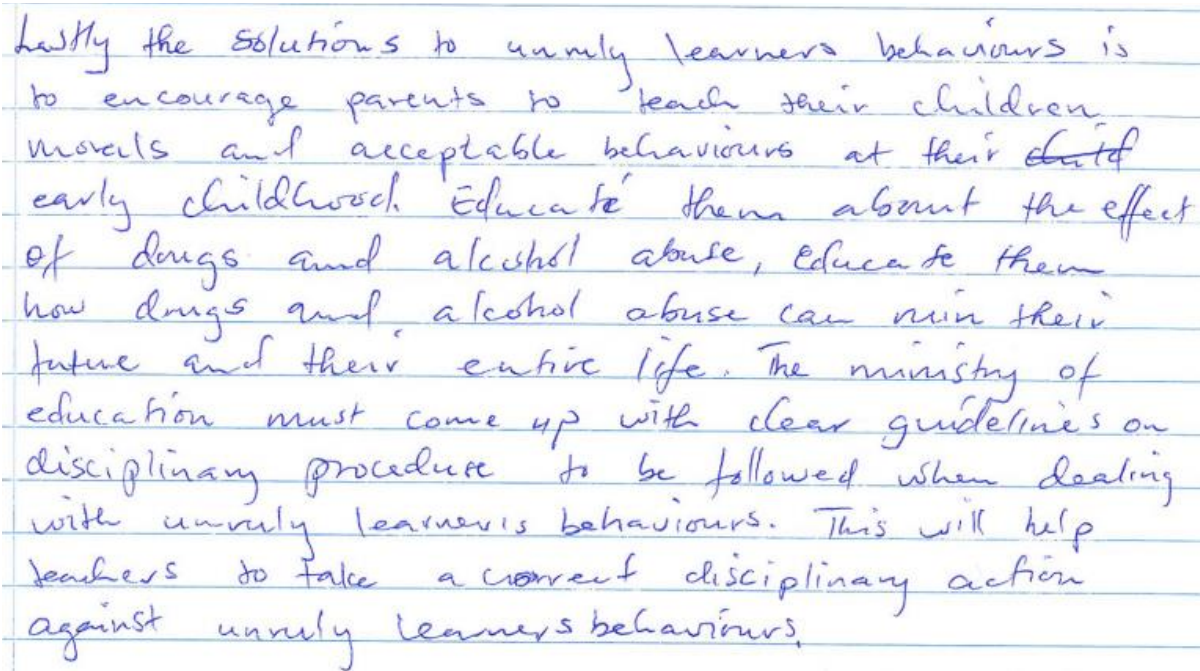 Lastly the solutions to unruly learners behaviours is
to encourage parents to teach their children
morals and acceptable behaviours at their child
early childhood. Educate them about the effect
of drugs and alcohol abuse, educate them
how drugs and alcohol abuse can ruin their
future and their entire life. The ministry of
education must come up with clear guidelines on
disciplinary procedure to be followed when dealing
with unruly learner's behaviours. This will help
teachers to take a correct disciplinary action
against unruly learners behaviours.